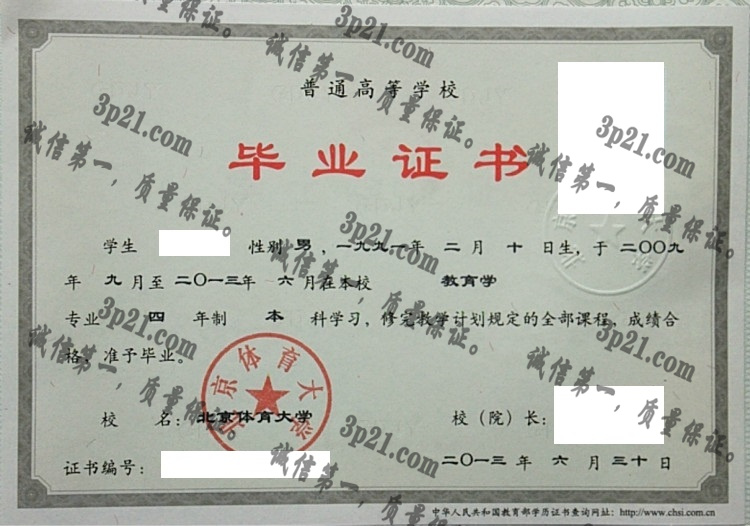 普通高等学校
毕业证书
学生 性别 男，一九九一年 二 月 十 日生，于 二〇〇九
年 九 月至 二〇一三年 六 月在本校 教育学
专业 四 年制 本 科学习，修完教学计划规定的全部课程，成绩合
格，准予毕业。
北京体育大学
校 名：北京体育大学 校（院）长：
证书编号： 二〇一三 年 六 月 三十 日
中华人民共和国教育部学历证书查询网址：http://www.chsi.com.cn
3p21.com
诚信第一，质量保证。
3p21.com
诚信第一，质量保证。
3p21.com
诚信第一，质量保证。
3p21.com
诚信第一，质量保证。
3p21.com
诚信第一，质量保证。
3p21.com
诚信第一，质量保证。
3p21.com
诚信第一，质量保证。
3p21.com
诚信第一，质量保证。